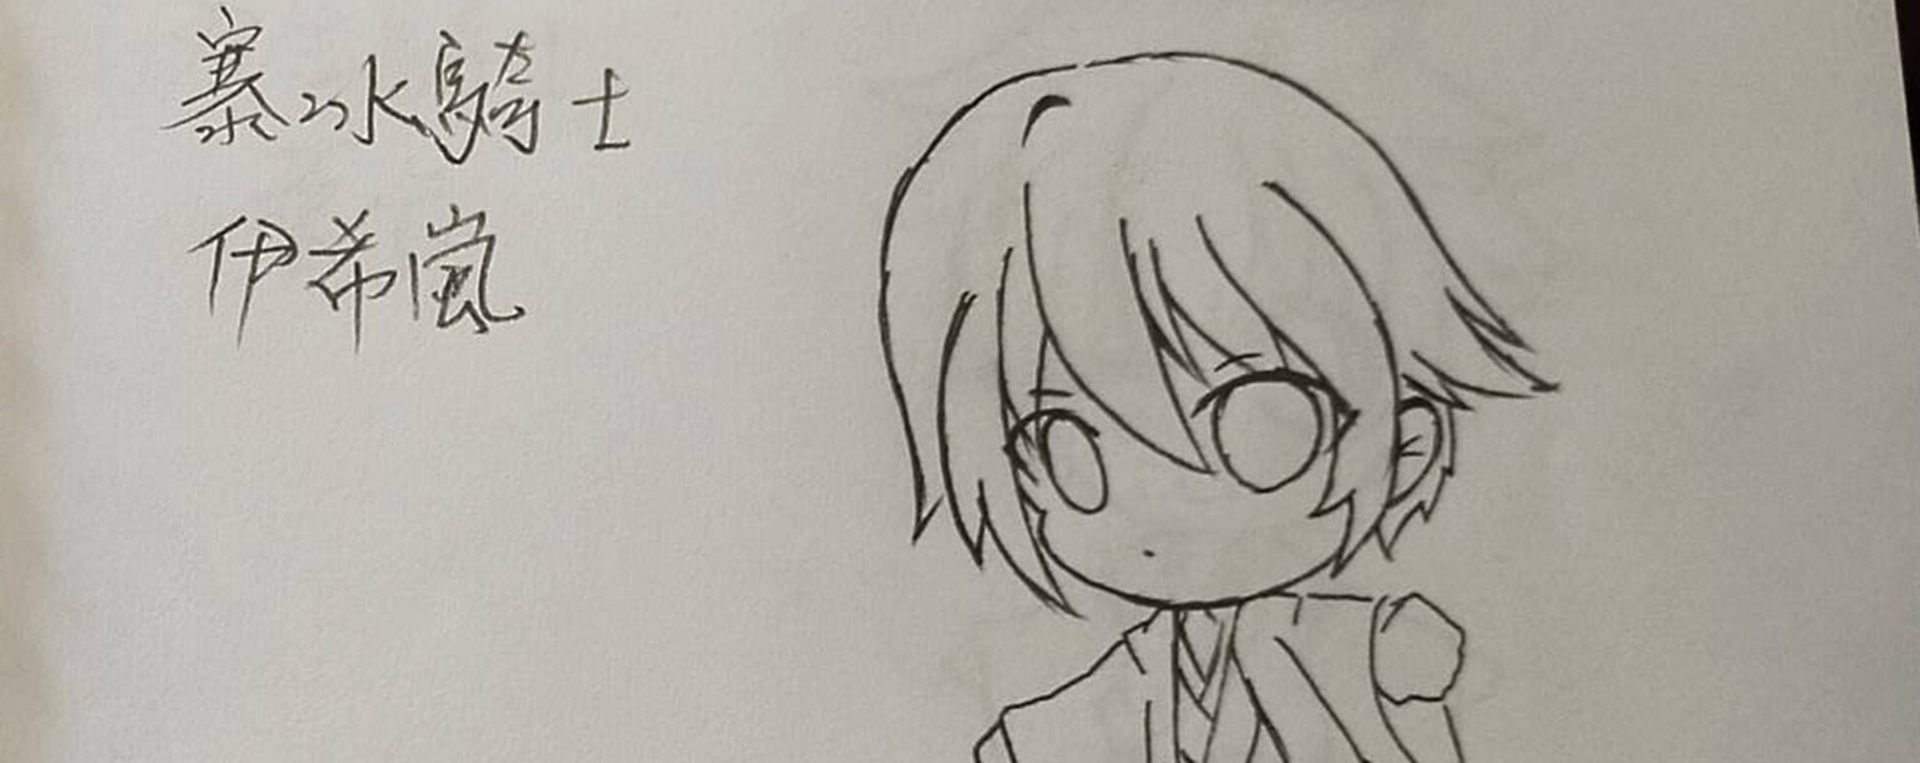 寒冰騎士
伊希嵐